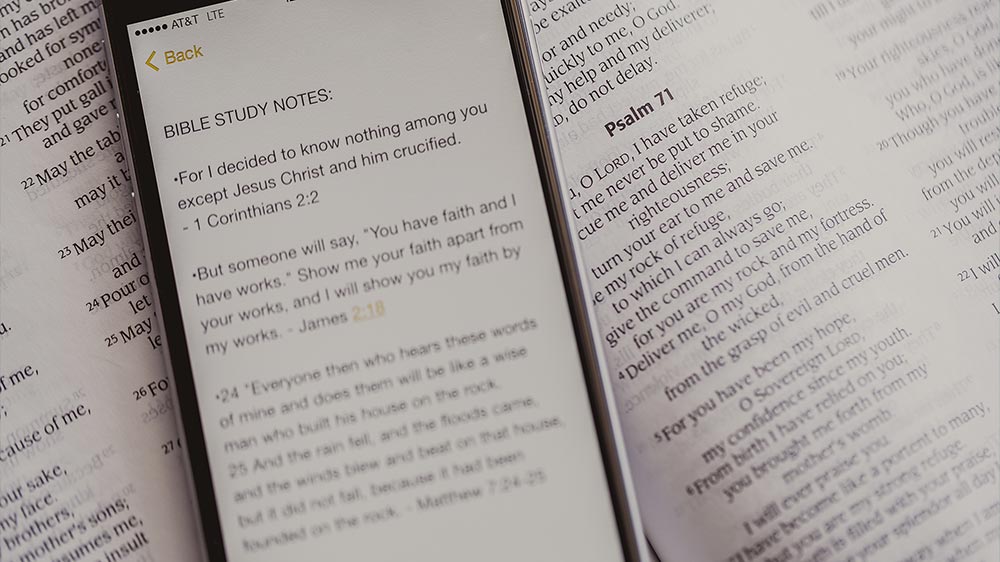 and has left m
ooked for sym
none,
for comfort
21 They put gall
and gave
22 May the tab
may it b
23 May thei
and
24 Pour o
let
25 May
le
26 Fo
27
of me,
ause of me,
our sake,
my face.
brothers,
mother's sons;
sumes me,
insult
AT&T LTE
Back
BIBLE STUDY NOTES:
•For I decided to know nothing among you
except Jesus Christ and him crucified.
- 1 Corinthians 2:2
•But someone will say, "You have faith and I
have works." Show me your faith apart from
your works, and I will show you my faith by
my works. - James 2:18
•24 "Everyone then who hears these words
of mine and does them will be like a wise
man who built his house on the rock.
25 And the rain fell, and the floods came,
and the winds blew and beat on that house,
but it did not fall, because it had been
founded on the rock. - Matthew 7:24-25
be exal
or and needy;
uickly to me, O God.
y help and my deliverer;
D, do not delay.
Psalm 71
, O LORD, I have taken refuge;
t me never be put to shame.
cue me and deliver me in your
righteousness;
turn your ear to me and save me.
e my rock of refuge,
to which I can always go;
give the command to save me,
for you are my rock and my fortress.
4 Deliver me, O my God, from the hand of
the wicked,
from the grasp of evil and cruel men.
5 For you have been my hope,
O Sovereign LORD,
my confidence since my youth.
6 From birth I have relied on you;
you brought me forth from my
mother's womb.
I will ever praise you.
have become like a portent to many,
but you are my strong refuge.
is filled with your praise,
your splendor all day
till I
your might to
your righteousness rea
skies, O G
you who have don
Who, O God, is li
20 Though you have
troubl
you will re
from the dep
you will
21 You will
and
22 I wil